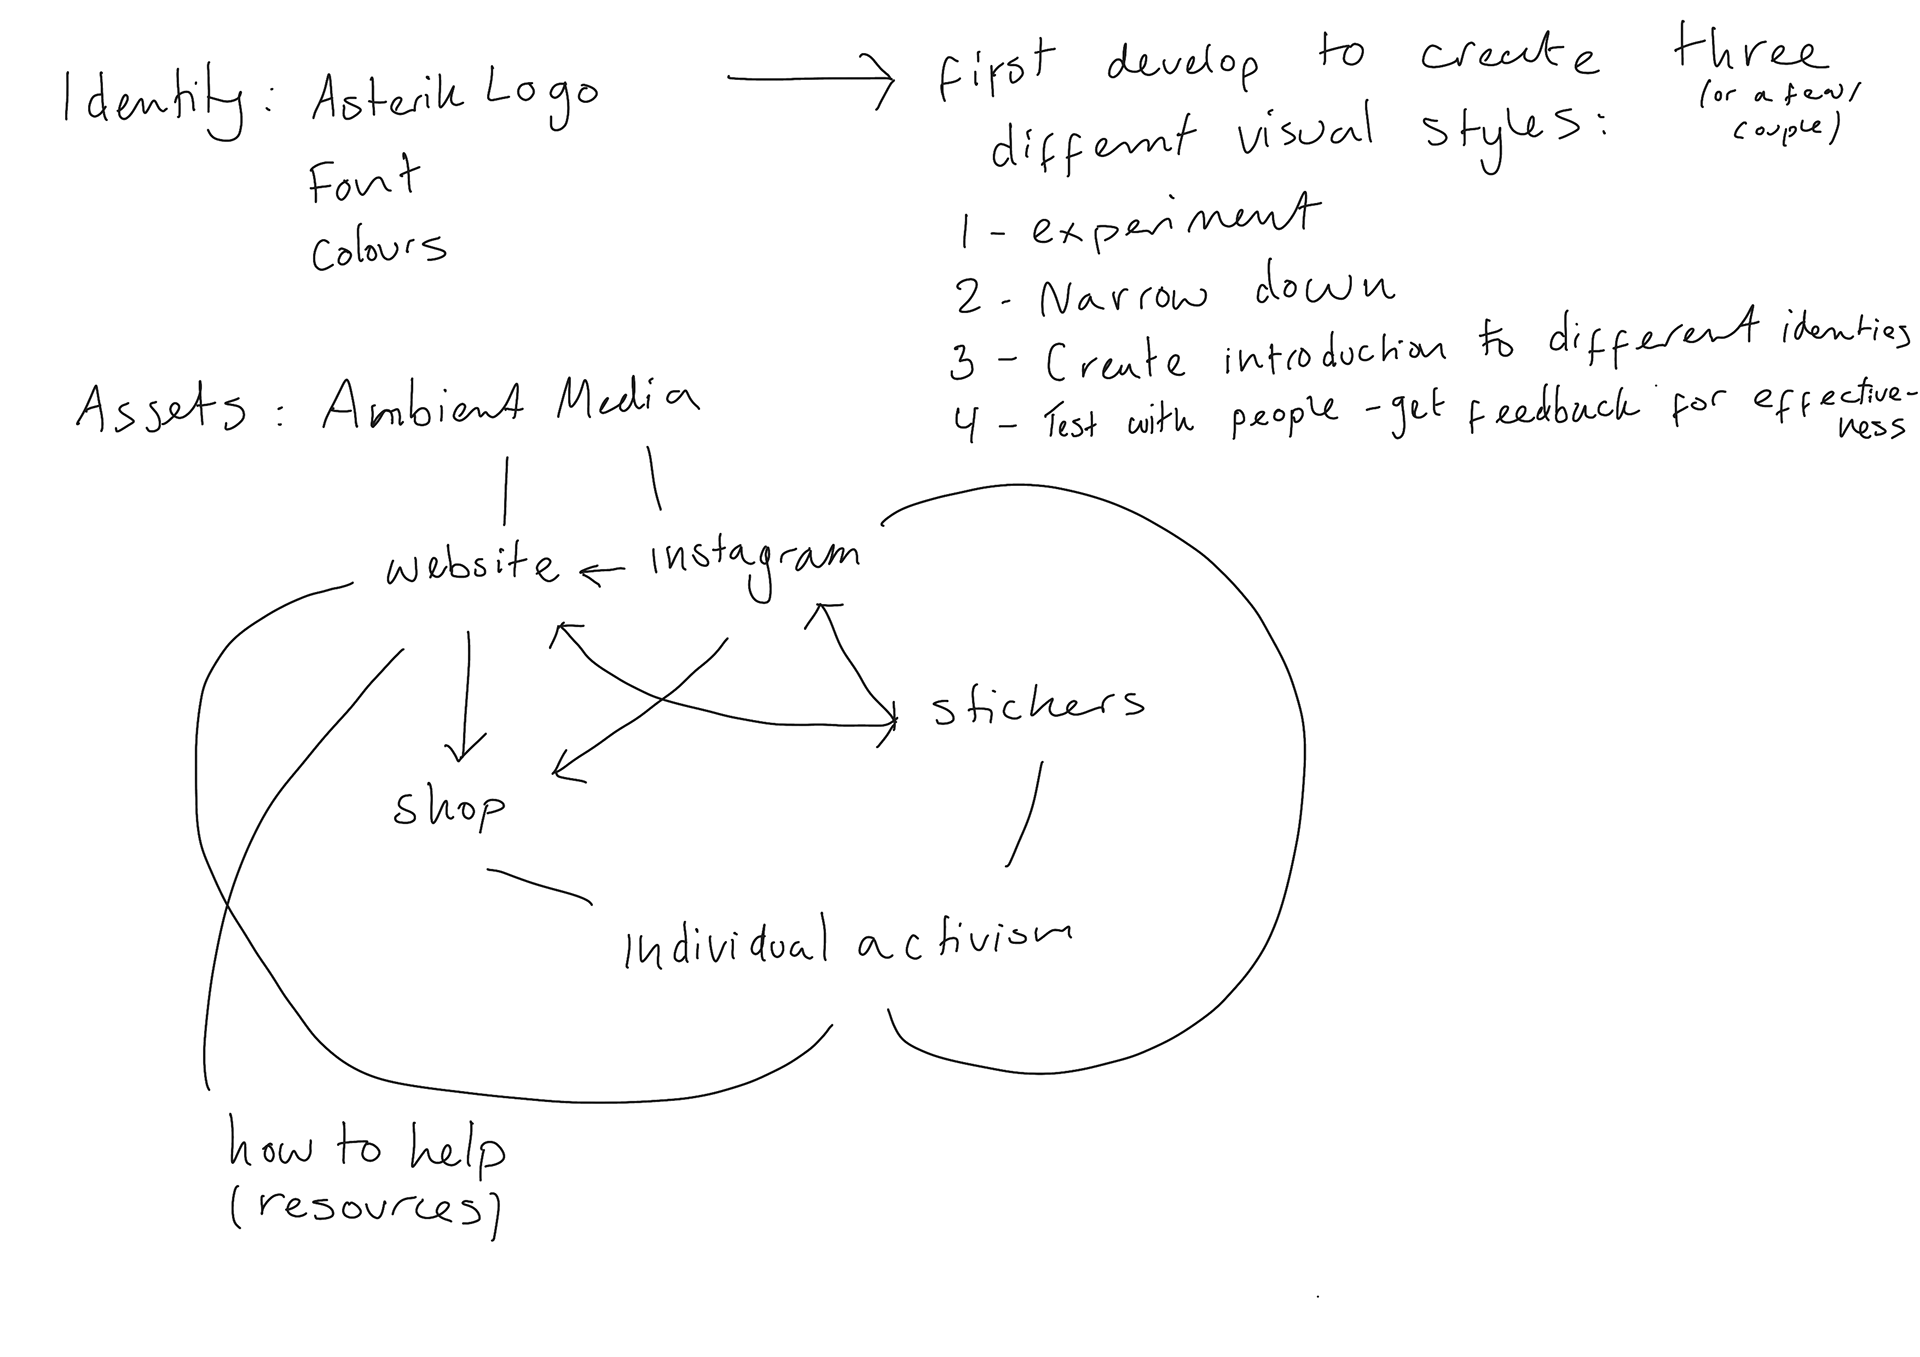 Identity: Asterik Logo
Font
Colours
First develop to create three
(or a few/
couple)
differnt visual styles:
1 - experiment
2 - Narrow down
3 - Create introduction to different identies
4 - Test with people - get feedback for effective-
ness
Assets: Ambient Media
website ← instagram
stickers
shop
Individual activism
how to help
(resources)